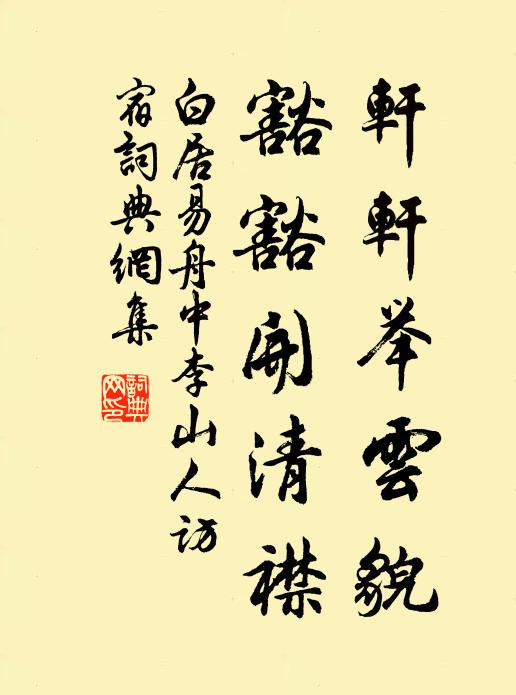 軒軒举雲貌
豁豁開清襟
白居易舟中李山人访
宿詞典網集
詞典
网印